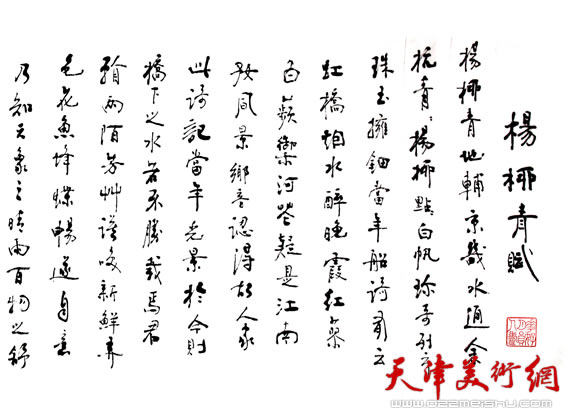 楊柳青賦
楊柳青地輔京畿水通余
杭青〻楊柳點〻白帆珎奇列
珠玉擁鈿當年船詩有云
虹橋泊水醉晚霞紅蓼
白蘋禦河岸疑是江南
好風景鄉音認得故人家
此詩記當年光景於今則
橋下之水若不勝載焉君
兩陌芳艸唼新鮮弄
色花魚蜂蝶暢遂自意
乃知天象之晴雨百物之舒
天津美術網
www.022meishu.com